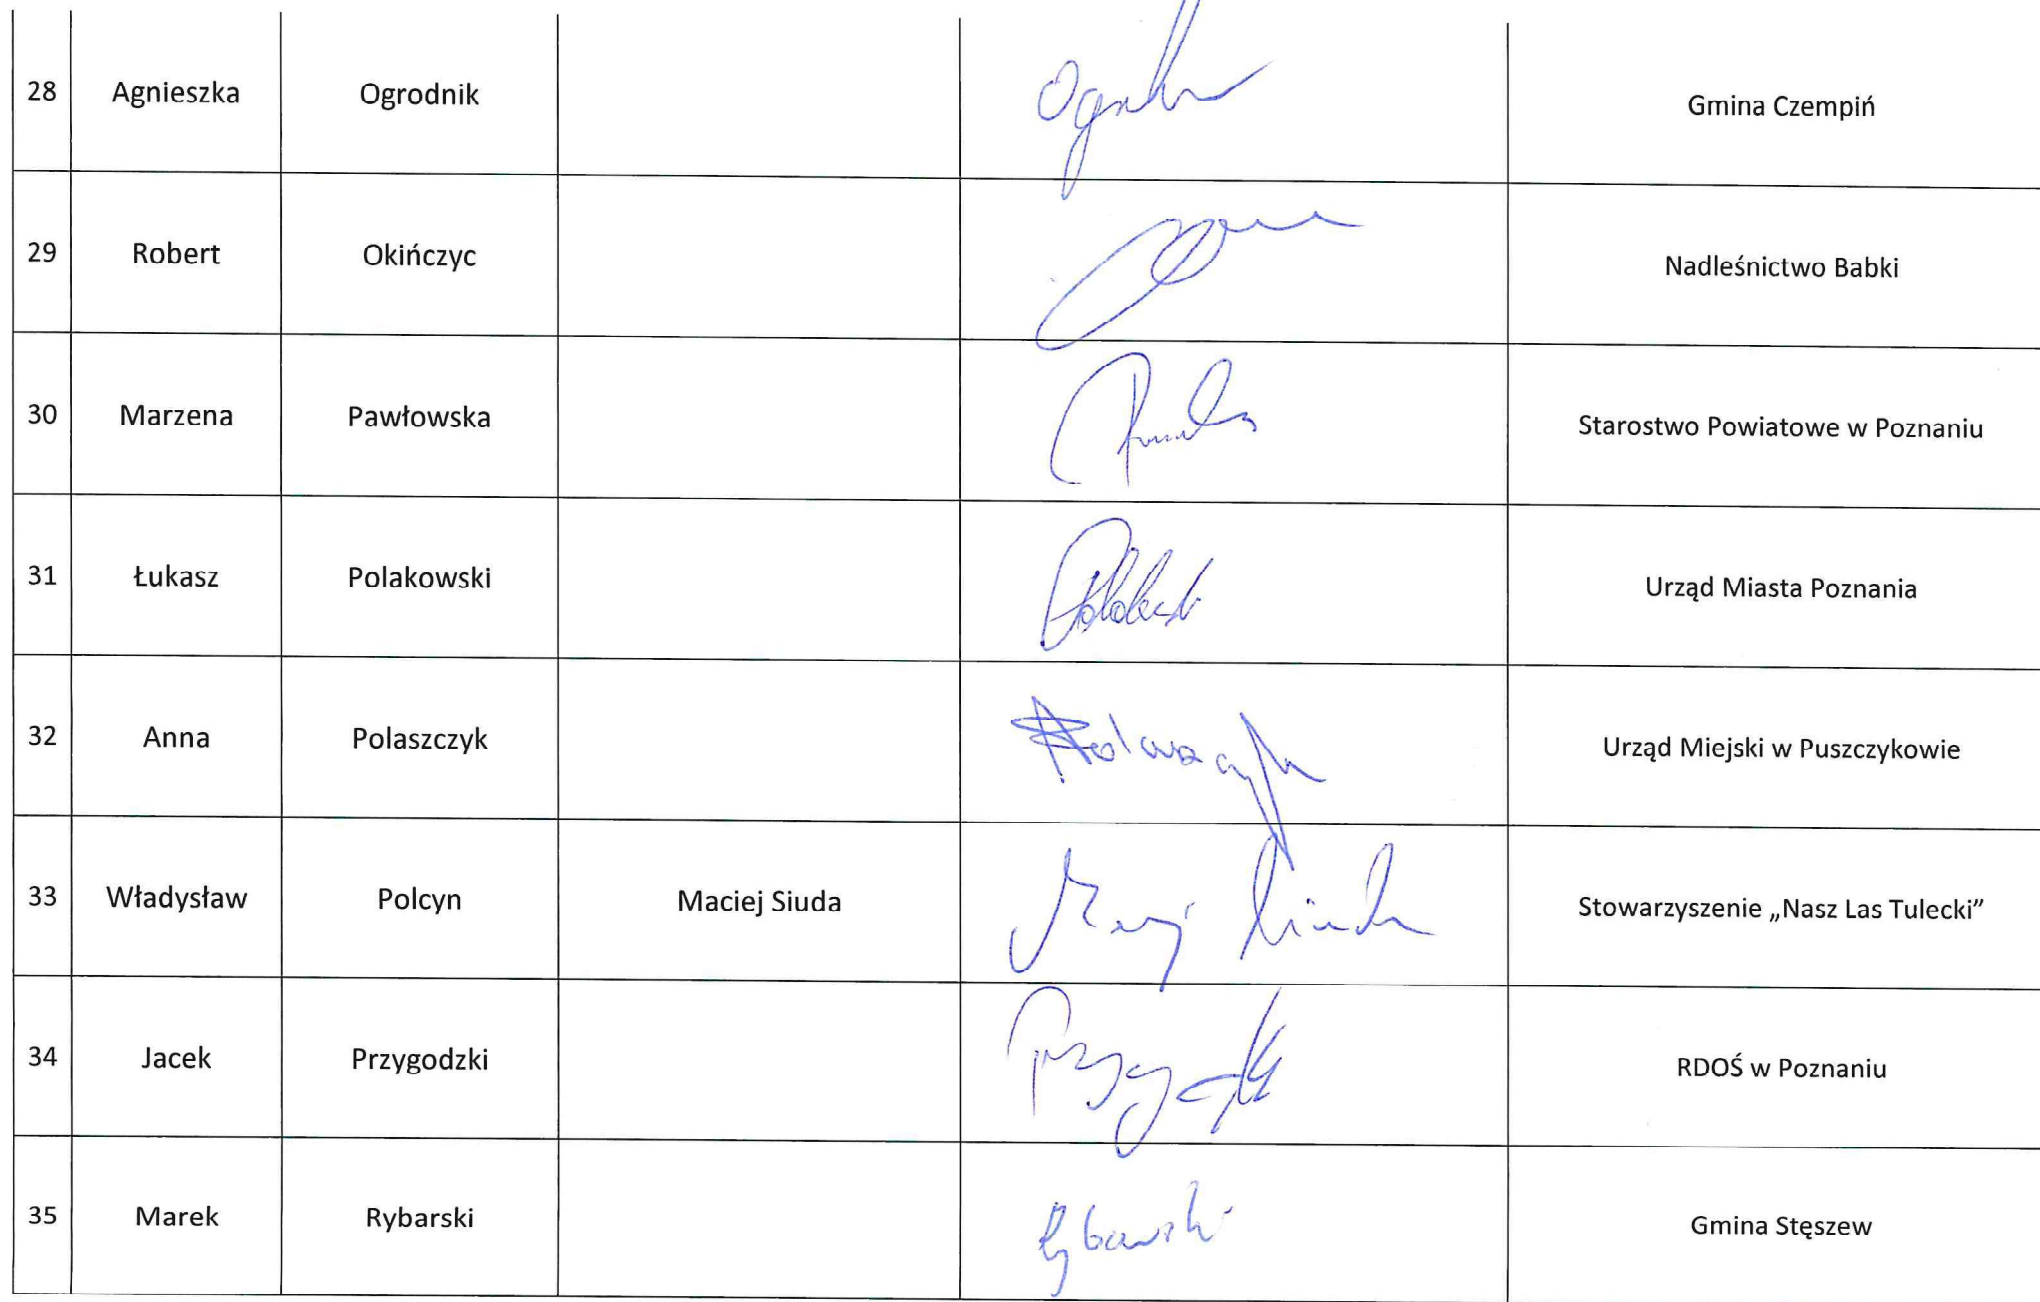 28 Agnieszka Ogrodnik Gmina Czempiń
29 Robert Okińczyc Nadleśnictwo Babki
30 Marzena Pawłowska Starostwo Powiatowe w Poznaniu
31 Łukasz Polakowski Urząd Miasta Poznania
32 Anna Polaszczyk Urząd Miejski w Puszczykowie
33 Władysław Polcyn Maciej Siuda Maciej Siuda Stowarzyszenie „Nasz Las Tulecki”
34 Jacek Przygodzki RDOŚ w Poznaniu
35 Marek Rybarski Rybarski Gmina Stęszew